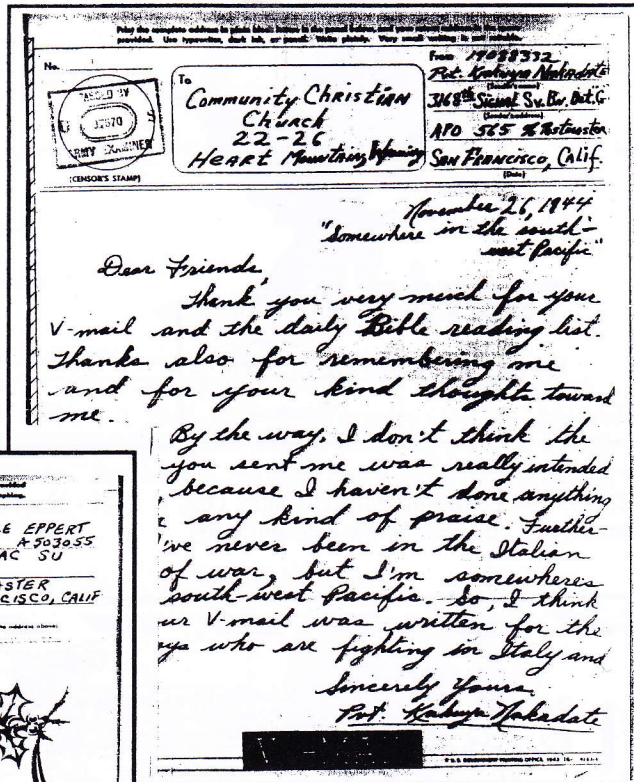 Print the complete address in plain block letters in the panel below, and
provided. Use typewriter, dark ink, or pencil. Write plainly. Very small writing is not suitable.
No.
PASSED BY
ARMY EXAMINER
(CENSOR'S STAMP)
To
Community Christian
Church
22-26
Heart Mountain, Wyoming
From 19088332
Pvt. Kakuya Nakadate
(Sender's name)
3168th Signal Sv. Bn. Det. G
(Sender's address)
APO 565 % Postmaster
San Francisco, Calif.
(Date)
November 26, 1944
"Somewhere in the south-
west Pacific"
Dear Friends,
Thank you very much for your
V-mail and the daily Bible reading list.
Thanks also for remembering me
and for your kind thoughts toward
me.
By the way, I don't think the
you sent me was really intended
, because I haven't done anything
any kind of praise. Further-
've never been in the Italian
of war, but I'm somewheres
south-west Pacific. So, I think
ur V-mail was written for the
ys who are fighting in Italy and
Sincerely yours,
Pvt. Kakuya Nakadate
U.S. GOVERNMENT PRINTING OFFICE 1943
E EPPERT
A 503055
AC SU
ASTER
CISCO, CALIF
address above)